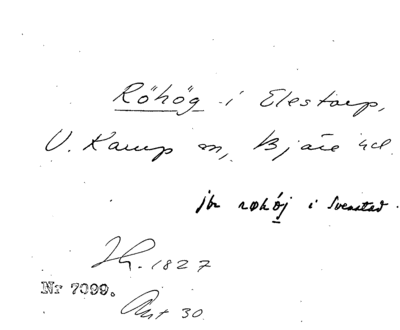 Röhög i Elestorp,
V. Karup sn, Bjäre hd.
jfr røhöj i Svenstad.
Jh. 1827
Nr 7099.
Akt 30